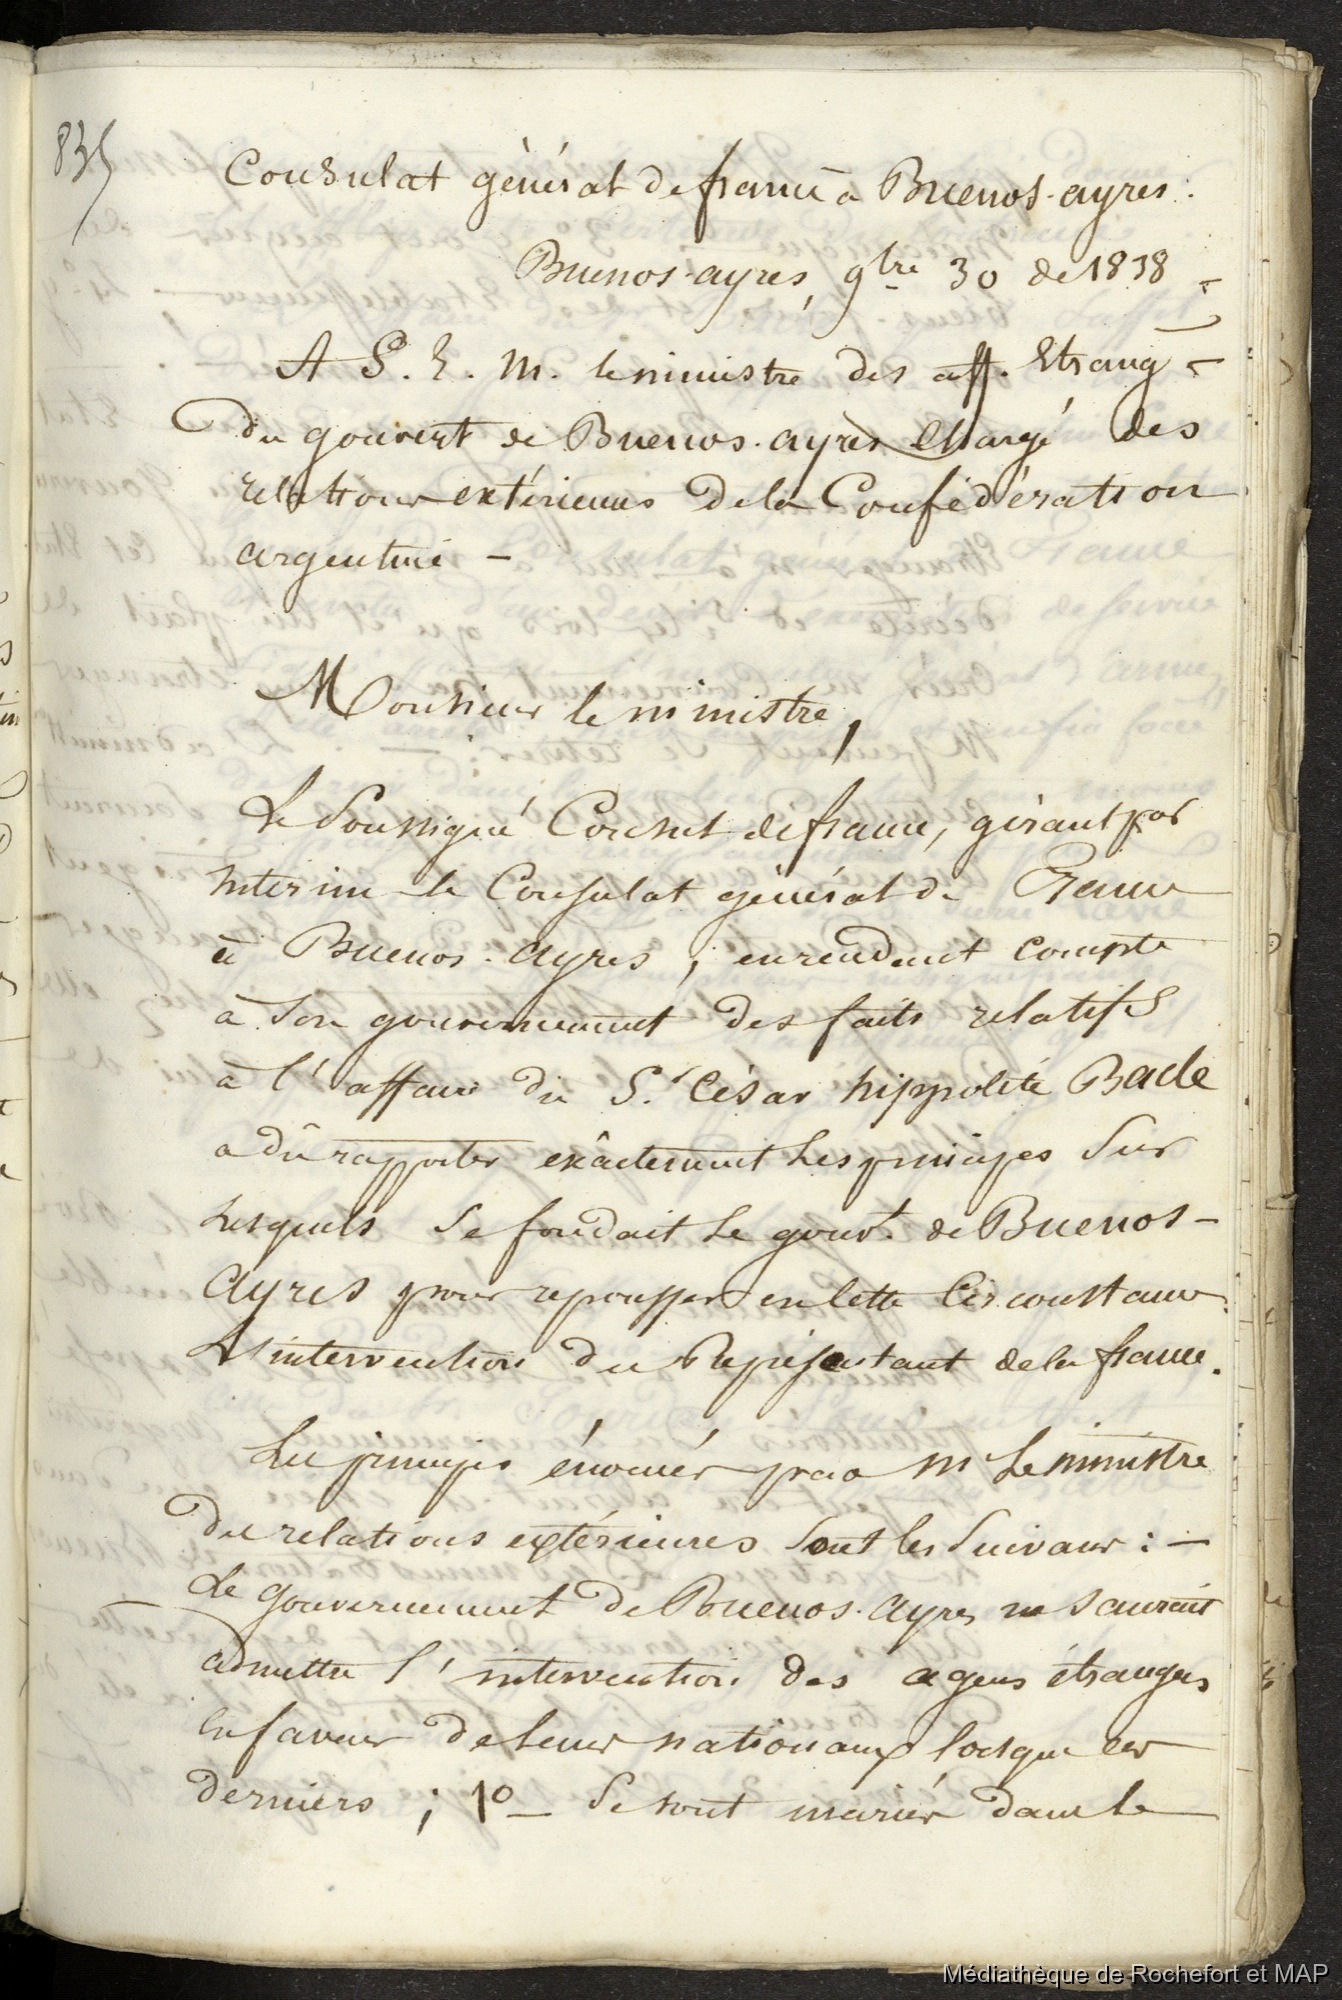 835
Consulat général de france à Buenos-ayres.
Buenos-ayres, 9bre 30 de 1838
A S. E. M. le ministre des aff. Etrang
Du gouvert de Buenos-ayres chargé des
relations extérieures De la Confédération
argentine –
Monsieur le ministre,
Le Soussigné Consul de france, gérant par
interim le Consulat général de France
à Buenos-ayres, en rendant compte
à Son gouvernement des faits relatifs
à l'affaire du Sr César hippolite Bacle
a dû rapporter exâctement Les principes Sur
Lesquels Se fondait Le gouvt de Buenos-
Ayres pour repousser en Cette Circonstance
L'intervention du Représentant de la france.
Les principes énoncés par M Le ministre
Des relations extérieures Sont les Suivans : –
Le gouvernement De Buenos-ayres ne Saurait
admettre l'intervention des agens étrangers
en faveur De leurs nationaux lorsque ces
derniers ; 1o – Se sont mariés dans le
Médiathèque de Rochefort et MAP